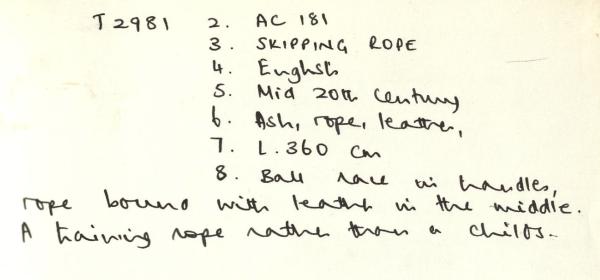 T2981 2. AC 181
3. SKIPPING ROPE
4. English
5. Mid 20th Century
6. Ash, rope, leather,
7. L. 360 cm
8. Ball race in handles,
rope bound with leather in the middle.
A training rope rather than a childs.